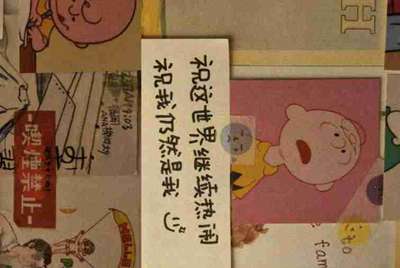 祝这世界继续热闹
祝我仍然是我
喫煙禁止
H
to
fam